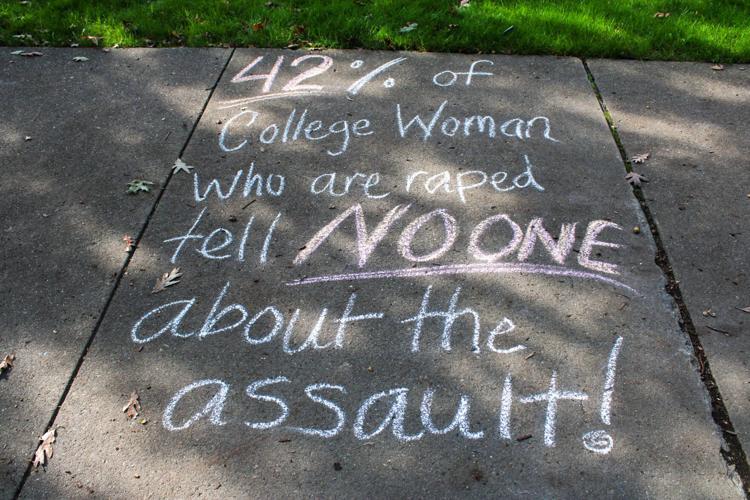 42% of
College Woman
Who are raped
tell NO ONE
about the
assault!